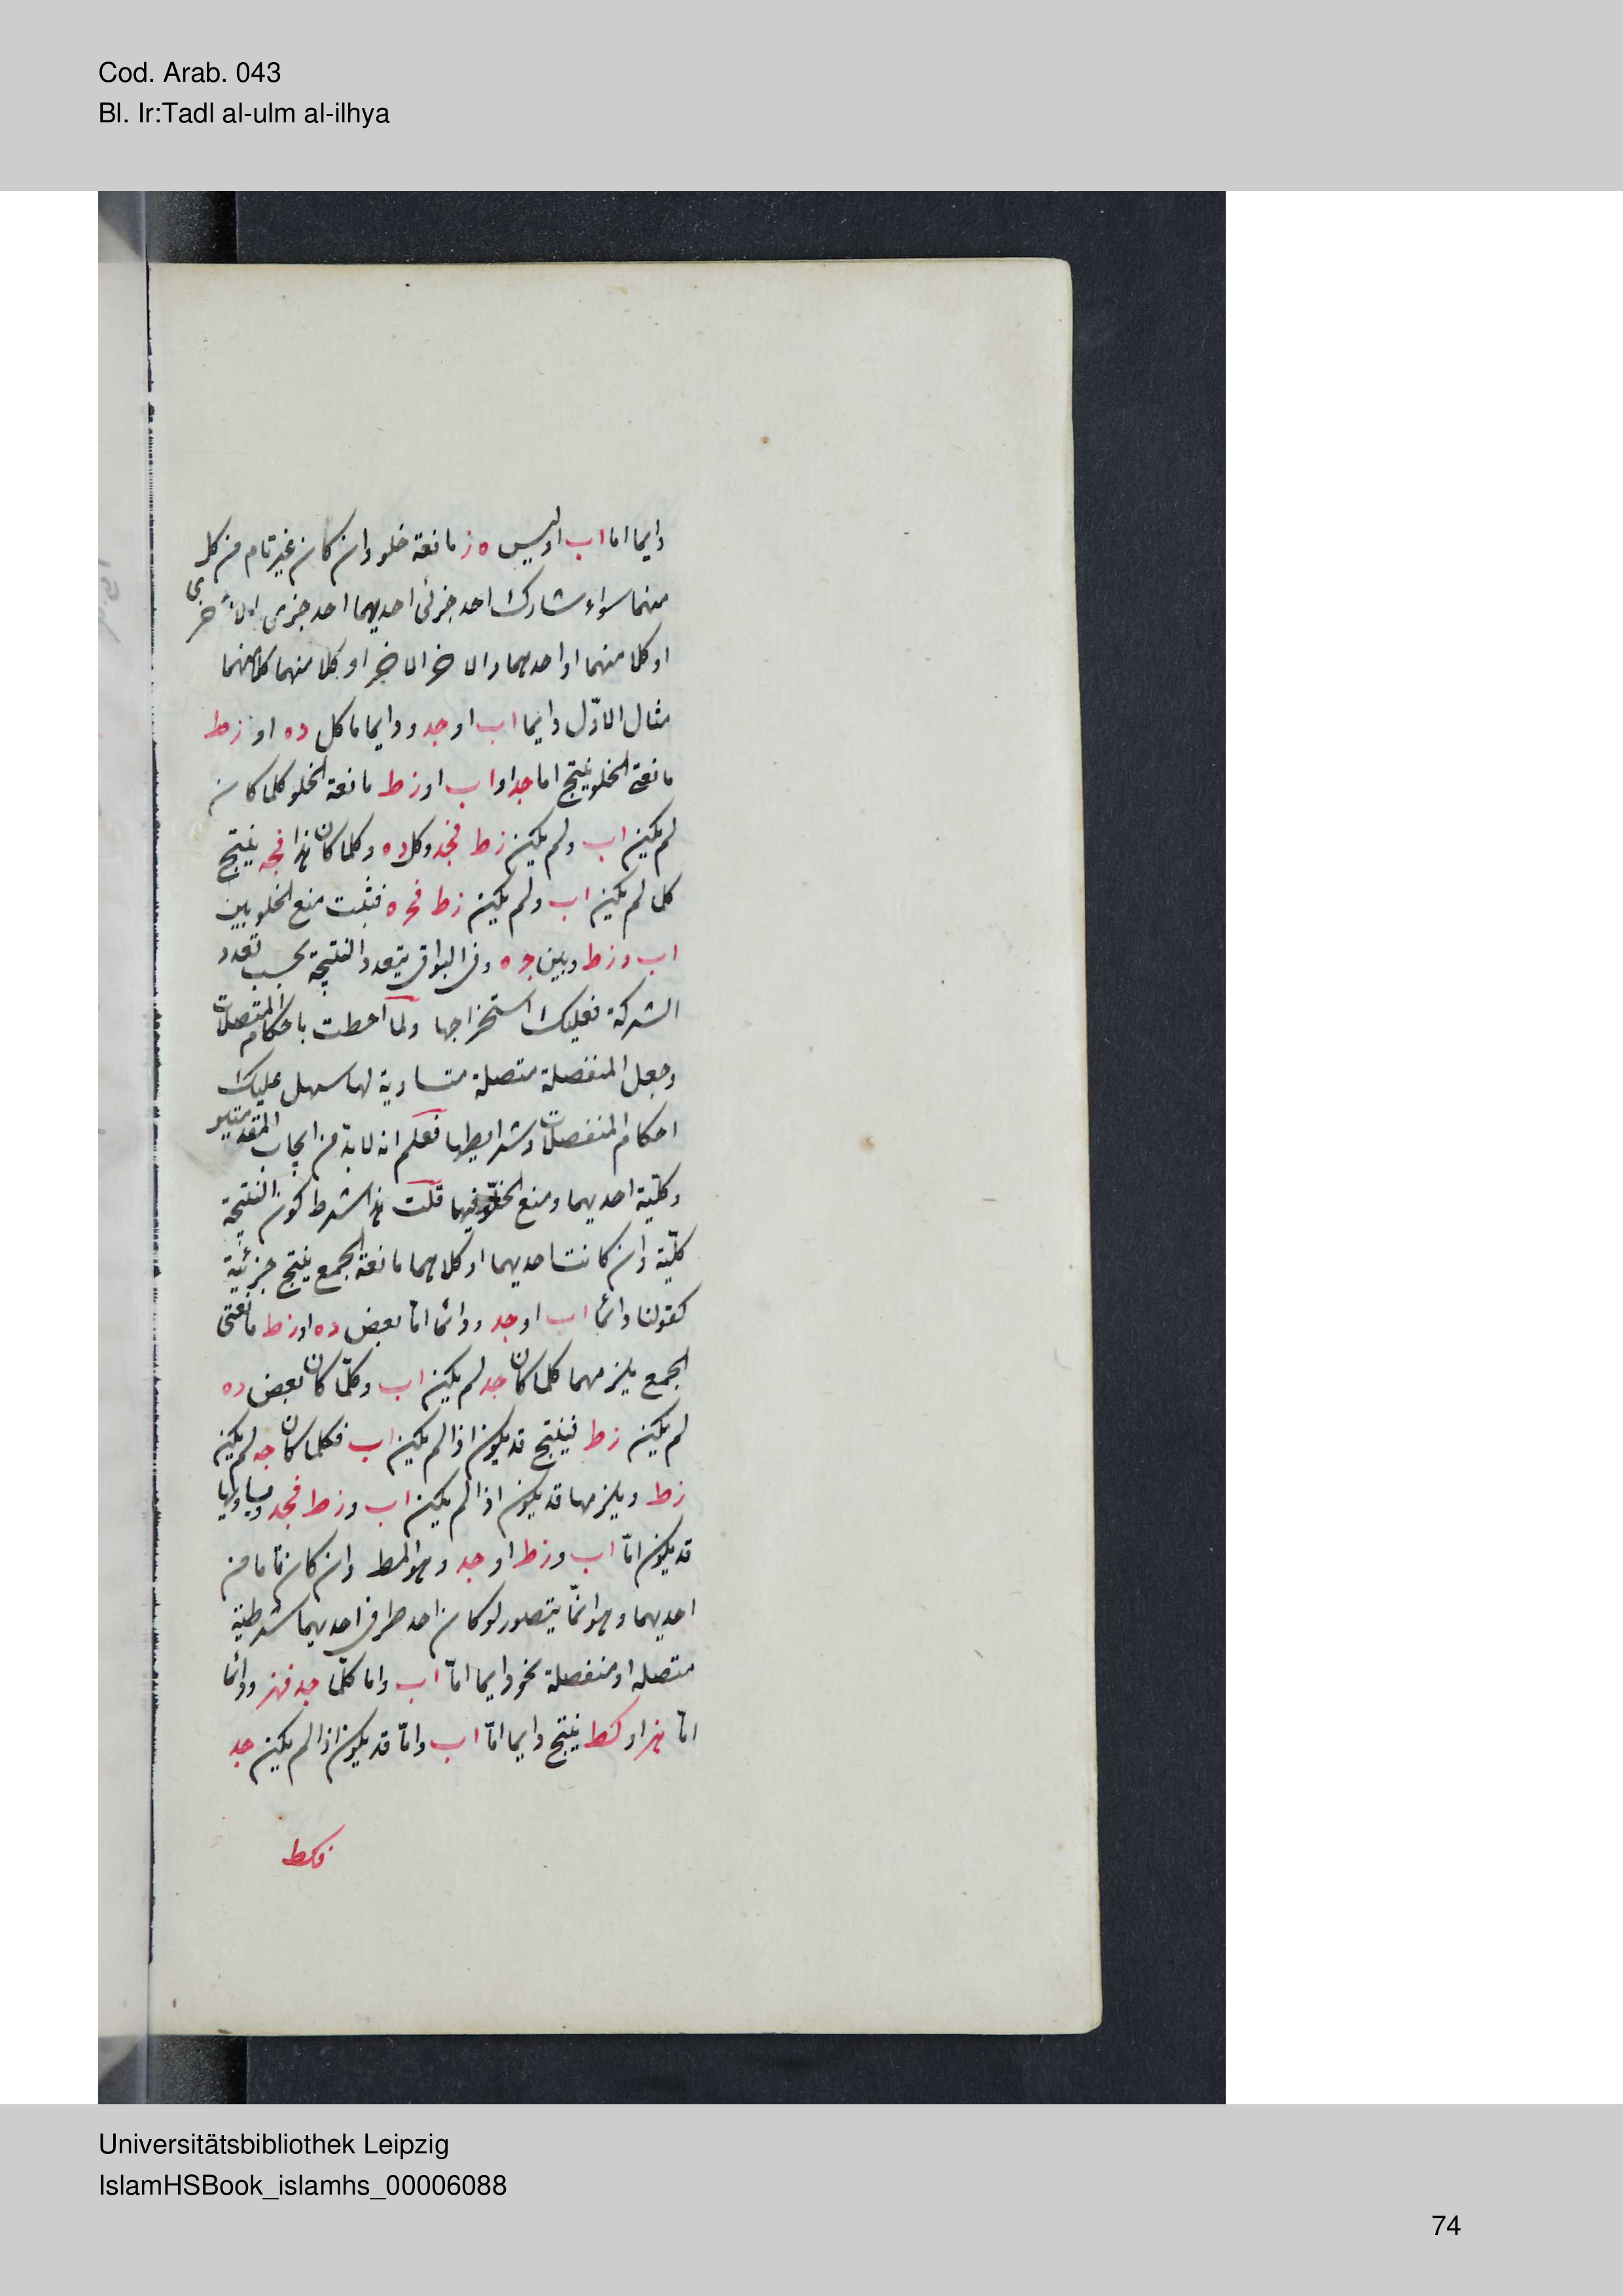 Cod. Arab. 043
Bl. Ir:Tadl al-ulm al-ilhya
دايما اما اب او ليس ه ز مانعة خلو وان كان غير تام من كل
منهما سواء شارك احد جزئى احديهما احد جزى الاخرى
او كلا منهما او احدهما والاخر الاخر او كلا منهما كلا منهما
مثال الاوّل دايما اب او جد ودايما ما كل ده او زط
مانعة الخلو ينتج اما جد او اب او زط مانعة الخلو كلما كان
لم يكن اب ولم يكن زط فجد وكل ده وكلما كان هذا فجه ينتج
كل لم يكن اب ولم يكن زط فجه فثبت منع الخلو بين
اب وزط وبين جه وفى البواقى يتعدد النتيجة بحسب تعدد
الشركة فعليك استخراجها ولما احطت باحكام المتصلات
وجعل المنفصلة متصلة متساوية لها سهل عليك
احكام المنفصلات وشرايطها فعلم انه لابد من ايجاب المقدمتين
وكليّة احديهما ومنع الخلوّ فيها قلت هذا شرط كون النتيجة
كليّة وان كانت احديهما او كلاهما مانعة الجمع ينتج جزئية
كقولنا دائما اب او جد ودائما امّا بعض ده او زط مانعتى
الجمع يلزمهما كلما كان جد لم يكن اب وكلّما كان بعض ده
لم يكن زط فينتج قد يكون اذا لم يكن اب فكلما كان جه لم يكن
زط ويلزمها قد يكون اذا لم يكن اب وزط فجد ويساويها
قد يكون امّا اب وزط او جد وهو المط وان كان تاما من
احديهما وهو انّما يتصور لو كان احد طرفى احديهما شرطية
متصله او منفصلة نحو دايما امّا اب واما كلّما جد فهز ودائما
امّا هز او كط ينتج دايما امّا اب وامّا قد يكون اذا لم يكن جد
فكط
Universitätsbibliothek Leipzig
IslamHSBook_islamhs_00006088
74